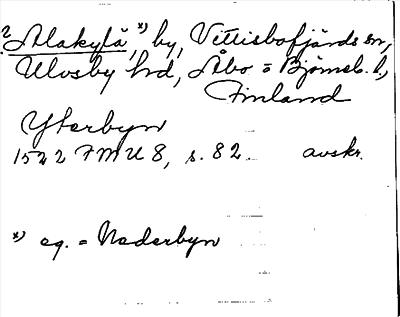 ? Alakylä,*) by, Vittisbofjärds sn,
Ulvsby hd, Åbo = Björneb. l.,
Finland
Ytterbyn
1522 FMU 8, s. 82. avskr.
*) eg. = Nederbyn